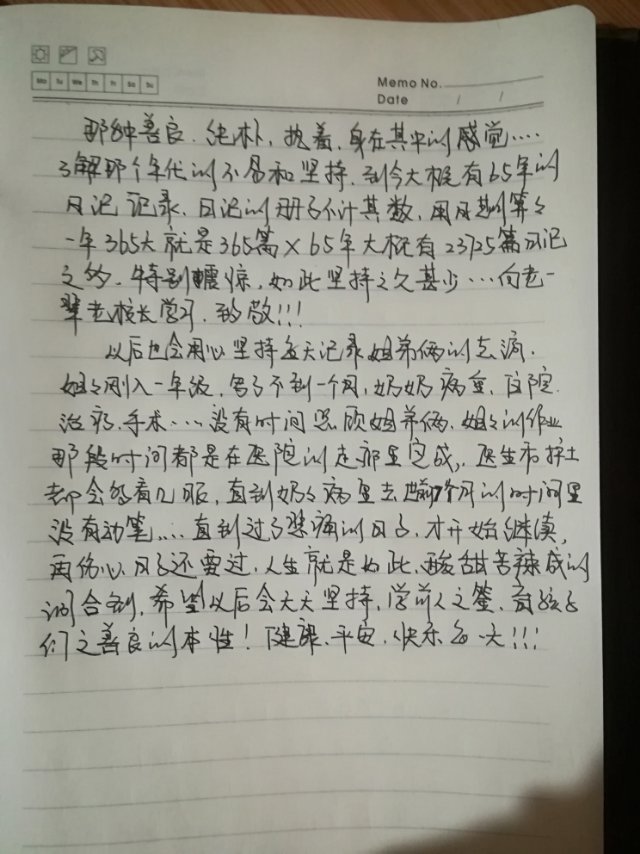 Mo Tu We Th Fr Sa Su
Memo No.
Date / /
那种善良、纯朴,执着,身在其中的感觉……
了解那个年代的不易和坚持,到今大概有65年的
日记记录,日记的册子不计其数,用日期算算
一年365天就是365篇×65年大概有23725篇日记
之多,特别震惊,如此坚持之久甚少…向老一
辈老校长学习,致敬!!!
以后也会用心坚持每天记录姐弟俩的点滴.
姐姐刚入一年级,写了不到一个月,奶奶病重,住院
治病、手术…没有时间照顾姐弟俩,姐姐的作业
那段时间都是在医院的走廊里完成,医生和护士
都会会看几眼,直到奶奶病逝去世前个月的时间里
没有动笔…直到过了悲痛的日子,才开始继续,
再伤心日子还要过,人生就是如此,酸甜苦辣咸的
调合剂,希望以后会天天坚持,学前人之鉴,育孩子
们之善良的本性!健康、平安、快乐每一天!!!